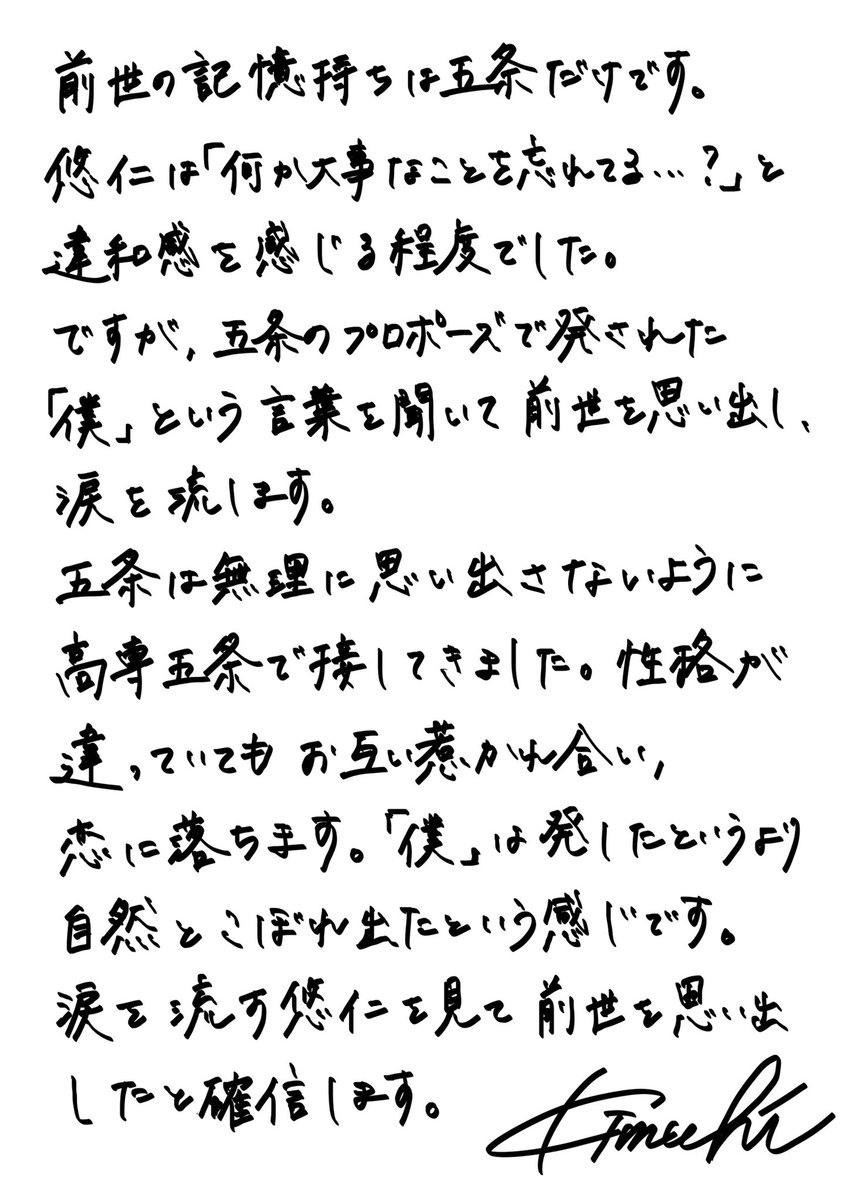 前世の記憶持ちは五条だけです。
悠仁は「何か大事なことを忘れてる…?」と
違和感を感じる程度でした。
ですが、五条のプロポーズで発された
「僕」という言葉を聞いて前世を思い出し、
涙を流します。
五条は無理に思い出さないように
高専五条で接してきました。性格が
違っていてもお互い惹かれ合い、
恋に落ちます。「僕」は発したというより
自然とこぼれ出たという感じです。
涙を流す悠仁を見て前世を思い出
したと確信します。